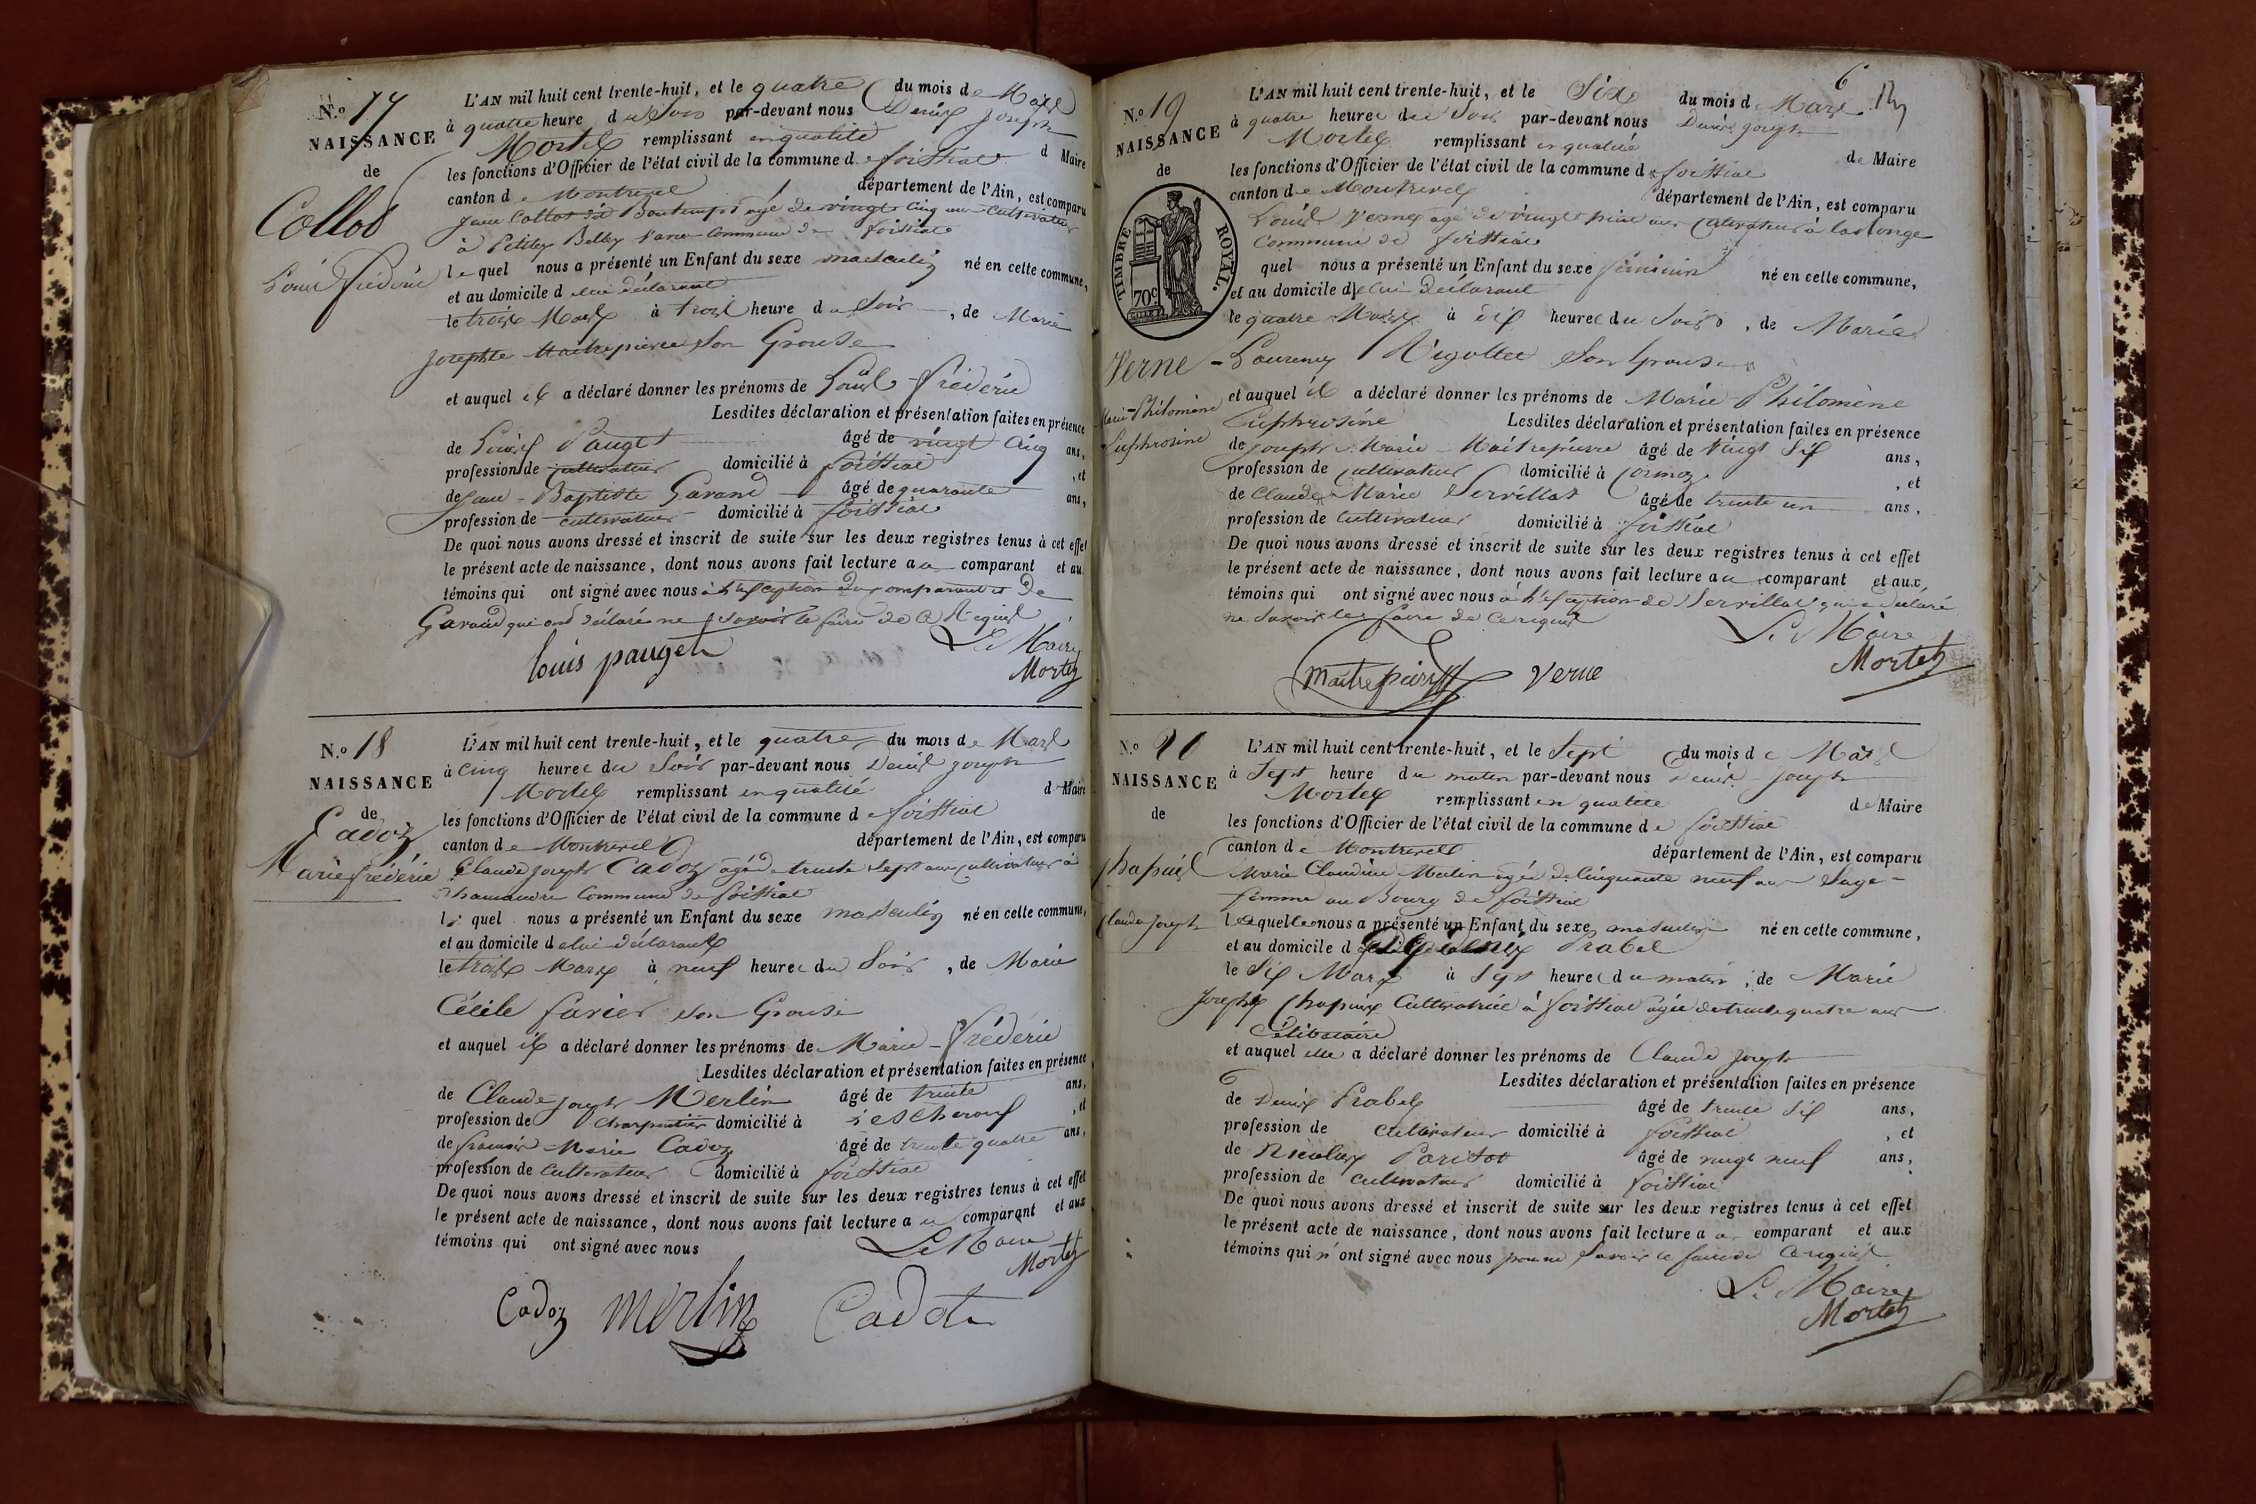 N.o 17
NAISSANCE
de
Collot
Louis Frédéric
L'AN mil huit cent trente-huit, et le quatre du mois de Mars
à quatre heure du Soir par-devant nous Denis Joseph
Mortel remplissant en qualité de Maire
les fonctions d'Officier de l'état civil de la commune de foissiat
canton de Montrevel département de l'Ain, est comparu
Jean Collot dit Bontemps agé de vingt cinq ans Cultivateur
à Petites commune de foissiat
le quel nous a présenté un Enfant du sexe masculin né en cette commune,
et au domicile de lui déclarant
le trois Mars à trois heure du Soir, de Marie
Josephte Maitrepierre son Epouse
et auquel il a déclaré donner les prénoms de Louis frédéric
Lesdites déclaration et présentation faites en présence
de Louis Pauget âgé de vingt cinq ans,
profession de cultivateur domicilié à foissiat, et
de Jean-Baptiste Gavand âgé de quarante ans,
profession de cultivateur domicilié à foissiat
De quoi nous avons dressé et inscrit de suite sur les deux registres tenus à cet effet
le présent acte de naissance, dont nous avons fait lecture au comparant et au
témoins qui ont signé avec nous à l'exception du comparant et de
Gavand qui ont déclaré ne savoir le faire de ce Requis
Le Maire
louis pauget
Mortel
N.o 18
NAISSANCE
de
Cadoz
Marie frédéric
L'AN mil huit cent trente-huit, et le quatre du mois de Mars
à cinq heures du Soir par-devant nous Denis Joseph
Mortel remplissant en qualité de Maire
les fonctions d'Officier de l'état civil de la commune de foissiat
canton de Montrevel département de l'Ain, est comparu
Claude Joseph Cadoz agé de trente sept ans cultivateur à
commune de foissiat
le quel nous a présenté un Enfant du sexe masculin né en cette commune,
et au domicile de lui déclarant
le trois Mars à neuf heures du Soir, de Marie
Cécile favier son Epouse
et auquel il a déclaré donner les prénoms de Marie-frédéric
Lesdites déclaration et présentation faites en présence
de Claude Joseph Merlin âgé de trente ans,
profession de Charpentier domicilié à Lescheroux, et
de françois Marie Cadoz âgé de trente quatre ans,
profession de cultivateur domicilié à foissiat
De quoi nous avons dressé et inscrit de suite sur les deux registres tenus à cet effet
le présent acte de naissance, dont nous avons fait lecture au comparant et aux
témoins qui ont signé avec nous
Le Maire
Mortel
Cadoz merlin Cadot
6
N.o 19
NAISSANCE
de
TIMBRE ROYAL.
70c
Verne
Marie-Philomène
Euphrosine
L'AN mil huit cent trente-huit, et le Six du mois de Mars
à quatre heures du Soir par-devant nous Denis Joseph
Mortel remplissant en qualité de Maire
les fonctions d'Officier de l'état civil de la commune de foissiat
canton de Montrevel département de l'Ain, est comparu
Louis Verne agé de vingt ans Cultivateur à
commune de foissiat
quel nous a présenté un Enfant du sexe féminin né en cette commune,
et au domicile de lui déclarant
le quatre Mars à dix heures du Soir, de Marie
Laurence Rigollet son Epouse
et auquel il a déclaré donner les prénoms de Marie Philomène
Euphrosine Lesdites déclaration et présentation faites en présence
de Joseph Marie Maitrepierre âgé de vingt six ans,
profession de cultivateur domicilié à Cormoz, et
de Claude Marie Servillat âgé de trente un ans,
profession de cultivateur domicilié à foissiat
De quoi nous avons dressé et inscrit de suite sur les deux registres tenus à cet effet
le présent acte de naissance, dont nous avons fait lecture au comparant et aux
témoins qui ont signé avec nous à l'exception de Servillat qui a déclaré
ne savoir le faire de ce requis
Le Maire
Mortel
maitrepierre Verne
N.o 20
NAISSANCE
de
Chapuis
Claude Joseph
L'AN mil huit cent trente-huit, et le Sept du mois de Mars
à Sept heure du matin par-devant nous Denis Joseph
Mortel remplissant en qualité de Maire
les fonctions d'Officier de l'état civil de la commune de foissiat
canton de Montrevel département de l'Ain, est comparu
Marie Claudine agée de Cinquante neuf ans Sage-
femme au Bourg de foissiat
laquelle nous a présenté un Enfant du sexe masculin né en cette commune,
et au domicile de Prabel
le Six Mars à Sept heures du matin, de Marie
Josephte Chapuis Cultivatrice à foissiat agée de trente quatre ans
Célibataire
et auquel elle a déclaré donner les prénoms de Claude Joseph
Lesdites déclaration et présentation faites en présence
de Denis Prabel âgé de trente six ans,
profession de cultivateur domicilié à foissiat, et
de Nicolas Paritot âgé de vingt neuf ans,
profession de cultivateur domicilié à foissiat
De quoi nous avons dressé et inscrit de suite sur les deux registres tenus à cet effet
le présent acte de naissance, dont nous avons fait lecture a comparant et aux
témoins qui n'ont signé avec nous pour ne savoir le faire de ce requis
Le Maire
Mortel